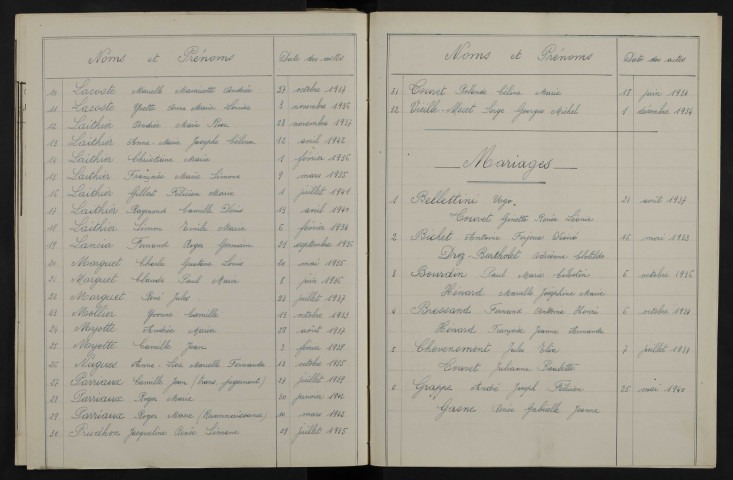 Noms et Prénoms Date des actes
10 Lacoste Marcelle Andrée 27 octobre 1937
11 Lacoste Yvette Anne Marie Louise 3 novembre 1936
12 Laithier Andrée Marie 28 novembre 1937
13 Laithier Anne-Marie Josephe Célina 12 avril 1942
14 Laithier Christiane Marie 1 février 1936
15 Laithier Françoise Marie Simone 9 mars 1935
16 Laithier Gilbert Félicien Marie 1 juillet 1941
17 Laithier Raymond Camille Denis 19 avril 1940
18 Laithier Simon Emile Marie 6 février 1934
19 Fernand Roger Germain septembre 1936
20 Marguet Charles Gustave Louis 20 mai 1936
21 Marguet Claude Paul Marie 8 juin 1936
22 Marguet René Jules 23 juillet 1937
23 Mollier Yvonne Camille 19 octobre 1933
24 Myotte Andrée Marie 28 août 1937
25 Myotte Camille Jean 3 février 1938
26 Anne-Lise Marcelle Fernande 13 octobre 1935
27 Parriaux Camille Jean (trans. jugement) 29 juillet 1938
28 Parriaux Roger Marie 30 janvier
29 Parriaux Roger Marie (Reconnaissance) mars
30 Prudhon Jacqueline Renée Simone juillet 1935
Noms et Prénoms Date des actes
31 Courvet Rolande Célina Marie 18 juin 1934
32 Vieille-Mecet Serge Georges Michel 1 décembre 1934
Mariages
1 Bellettini Ugo 21 août 1937
Courvet Ginette Renée Léonie
2 Bichet Antoine Désiré 16 mai 1933
Droz-Barthelet Clotilde
3 Bourdin Paul Marie Célestin 6 octobre 1936
Henard Marcelle Joséphine Marie
4 Bressand Fernand Antoine Henri 6 octobre 1934
Henard Françoise Jeanne Armande
5 Chevènement Jules Elie 7 juillet 1938
Courvet Julianne Paulette
6 Grappe André Joseph Félicien 25 mai 1940
Gasne Renée Gabrielle Jeanne